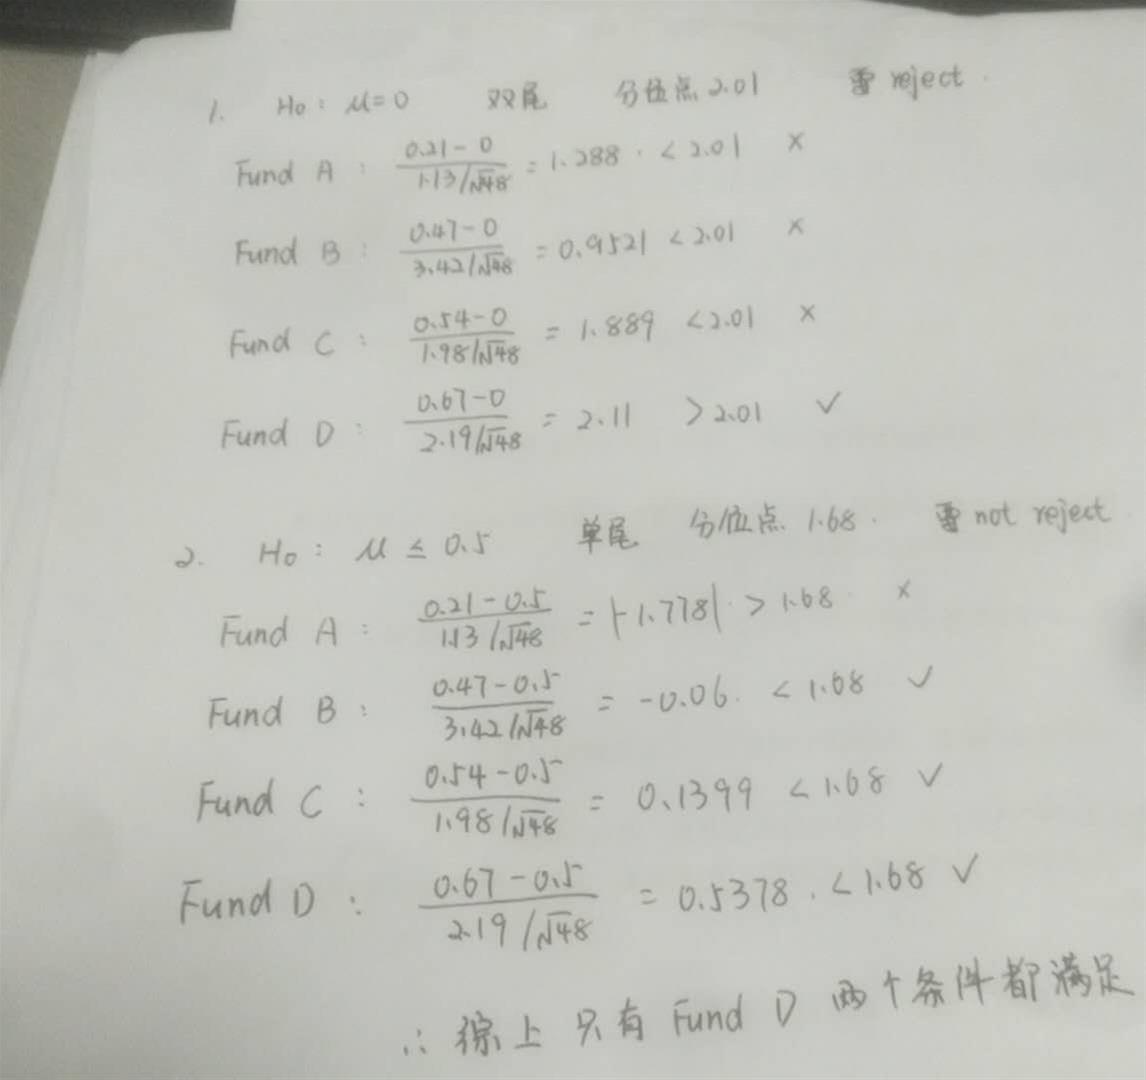 1. H₀: μ=0 双尾 分位点2.01 需 reject.
Fund A: (0.21-0)/(1.13/√48) = 1.288. < 2.01 ×
Fund B: (0.47-0)/(3.42/√48) = 0.9521 < 2.01 ×
Fund C: (0.54-0)/(1.98/√48) = 1.889 < 2.01 ×
Fund D: (0.67-0)/(2.19/√48) = 2.11 > 2.01 ✓
2. H₀: μ ≤ 0.5 单尾 分位点 1.68. 需 not reject
Fund A: (0.21-0.5)/(1.13/√48) = |-1.778|. > 1.68 ×
Fund B: (0.47-0.5)/(3.42/√48) = -0.06. < 1.68 ✓
Fund C: (0.54-0.5)/(1.98/√48) = 0.1399 < 1.68 ✓
Fund D: (0.67-0.5)/(2.19/√48) = 0.5378. < 1.68 ✓
∴ 综上 只有 Fund D 两个条件都满足